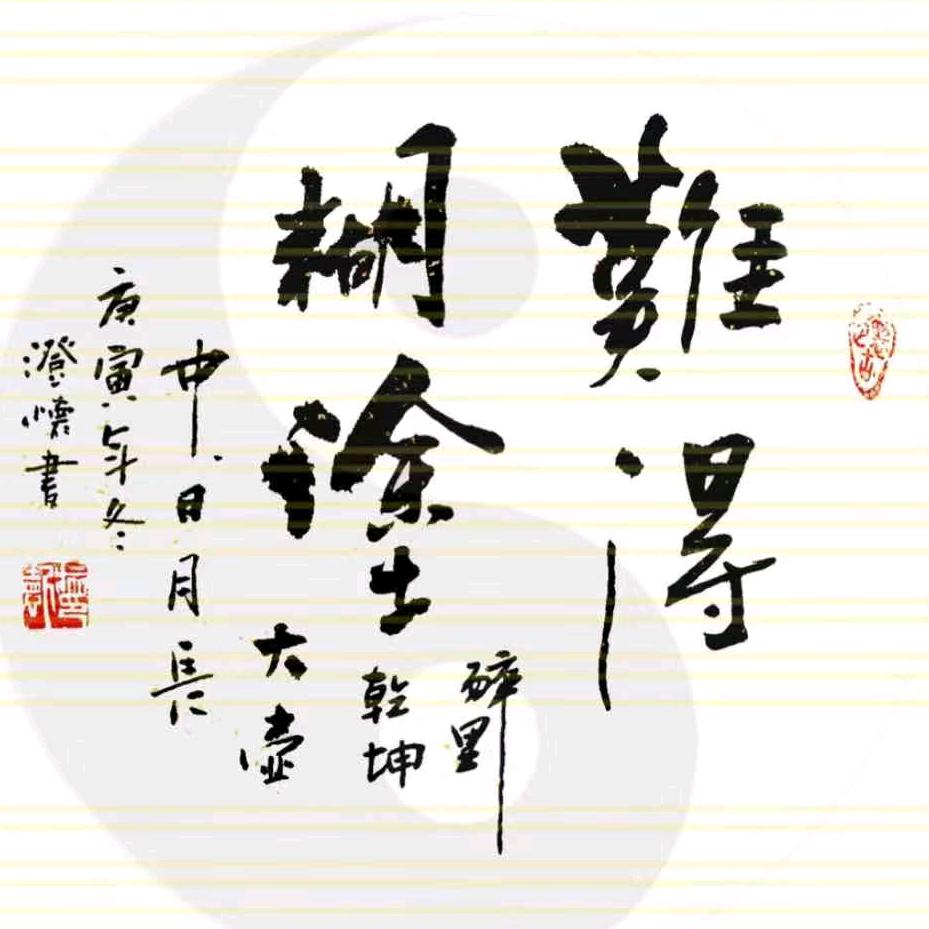 難得
糊塗
醉里
乾坤
大壺
中日月長
庚寅年冬
澄懷書